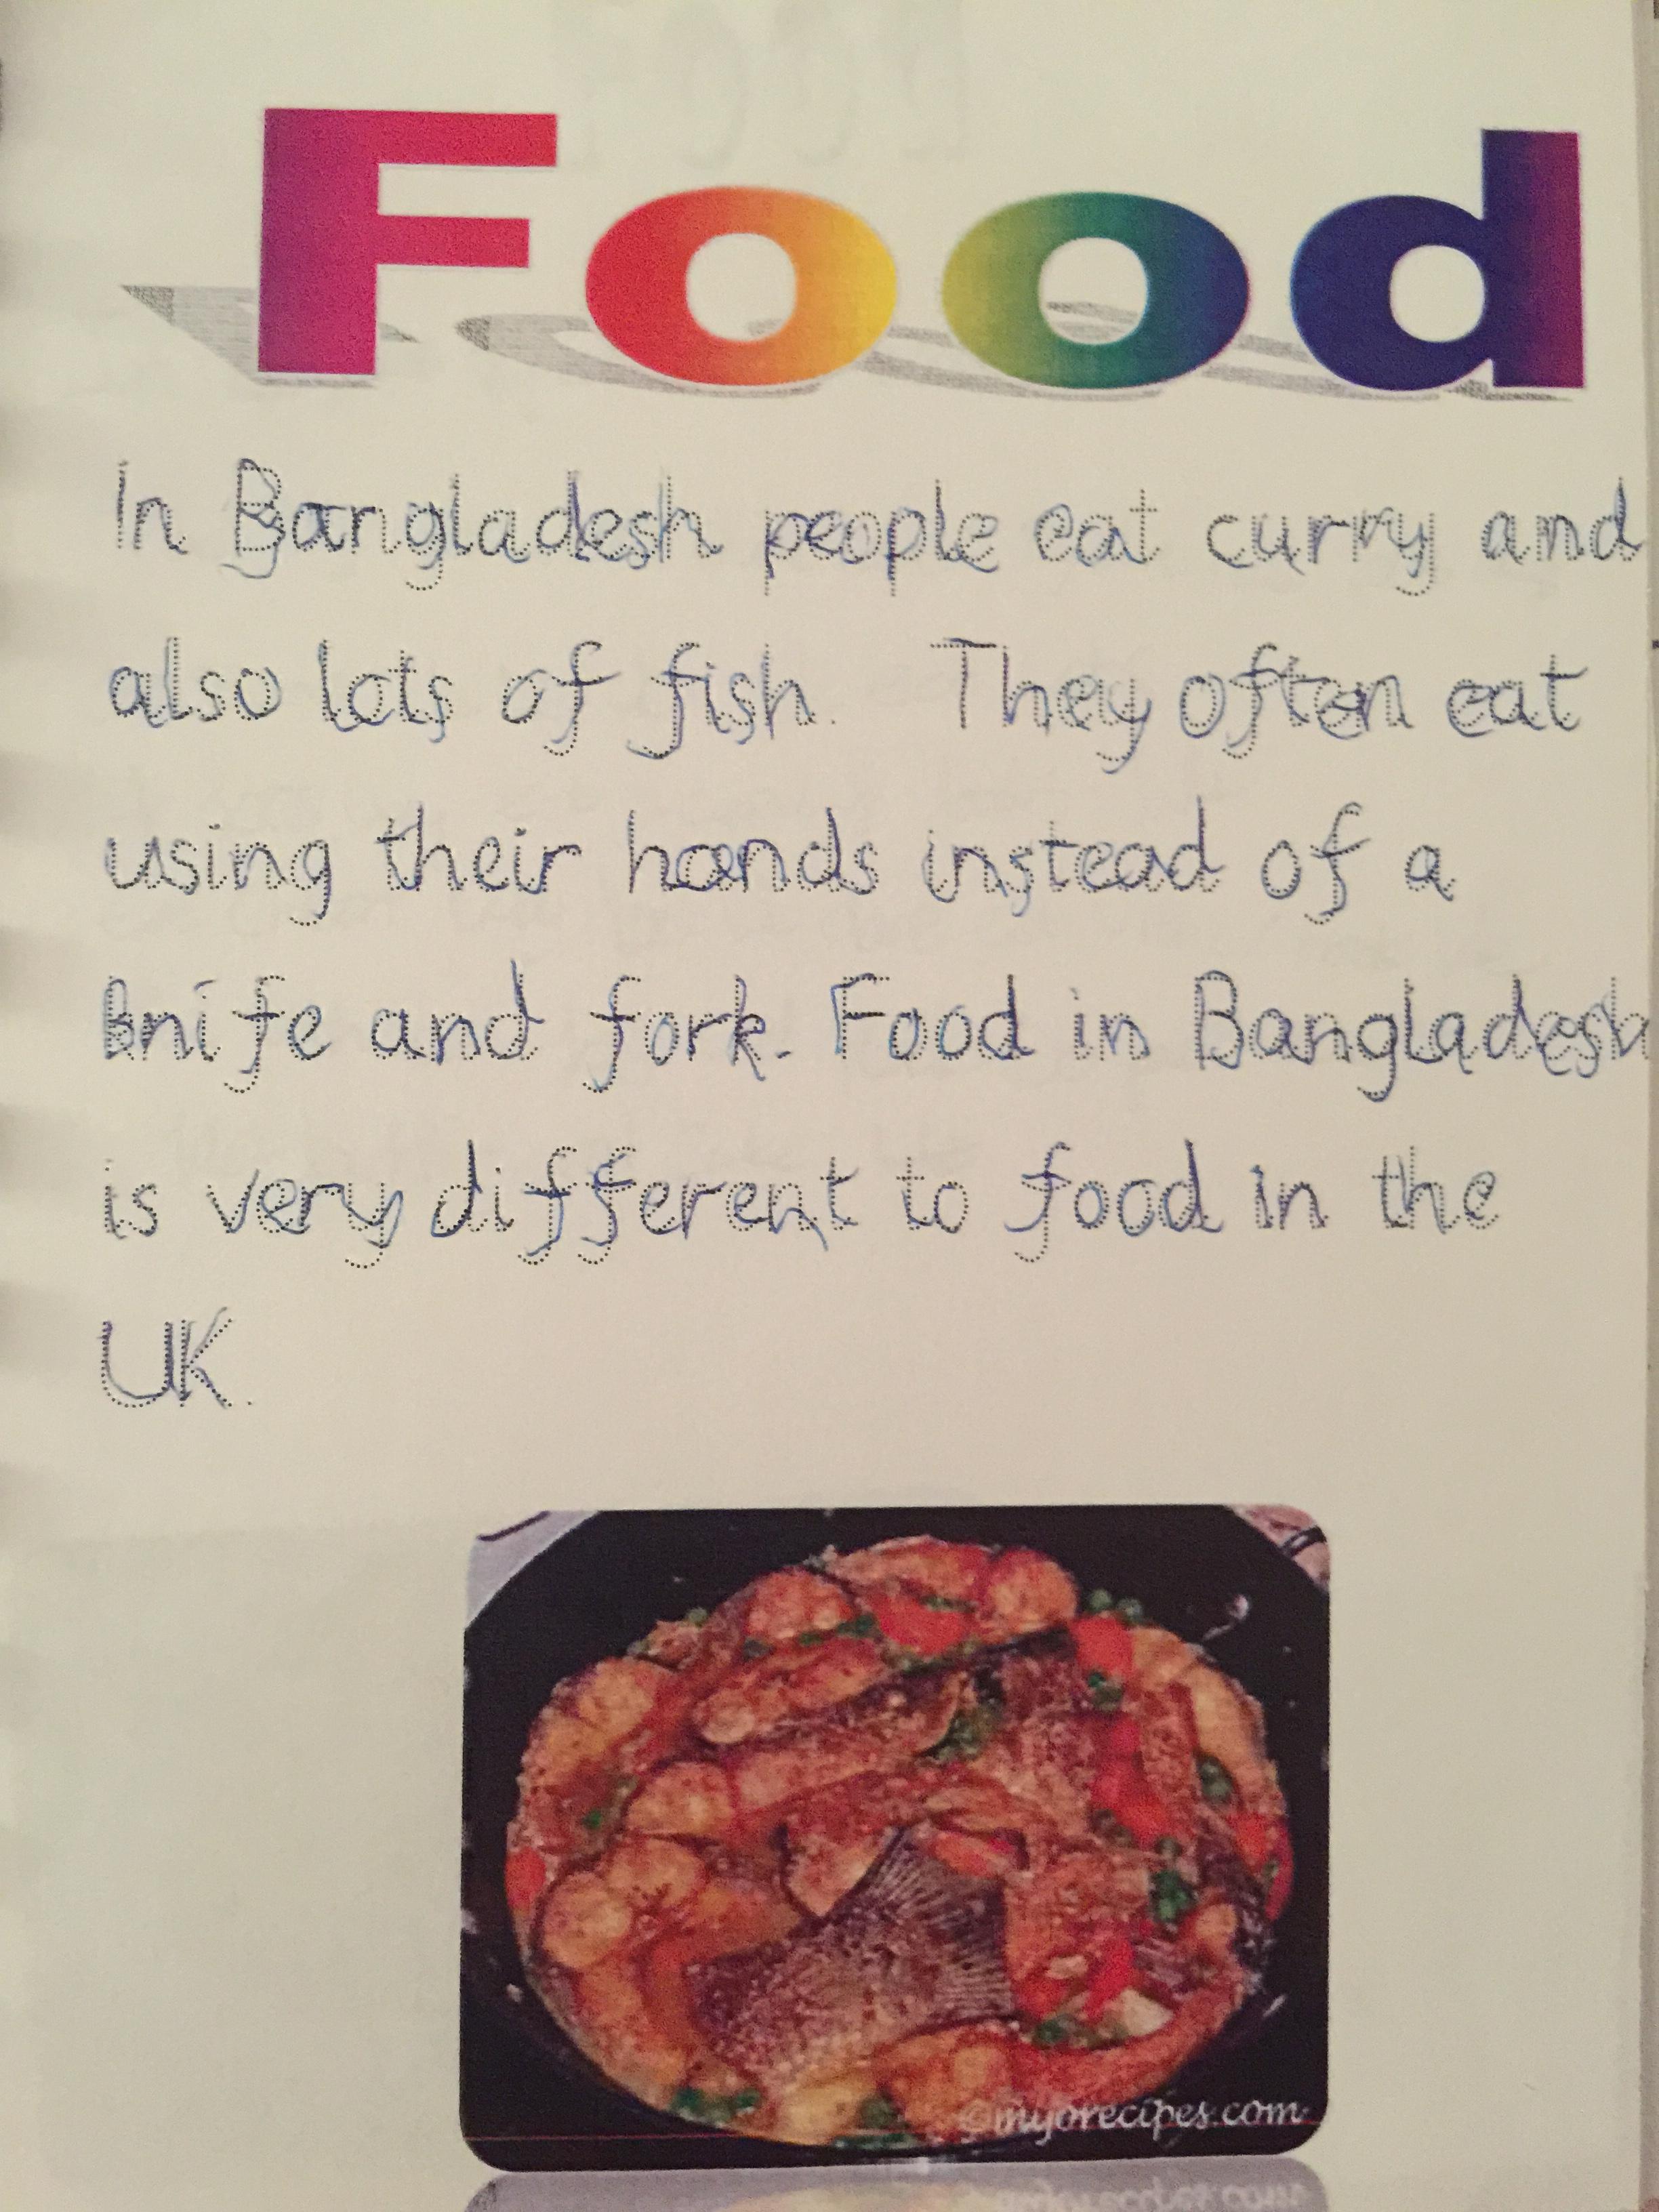 Food
In Bangladesh people eat curry and
also lots of fish. They often eat
using their hands instead of a
knife and fork. Food in Bangladesh
is very different to food in the
UK.
©myorecipes.com